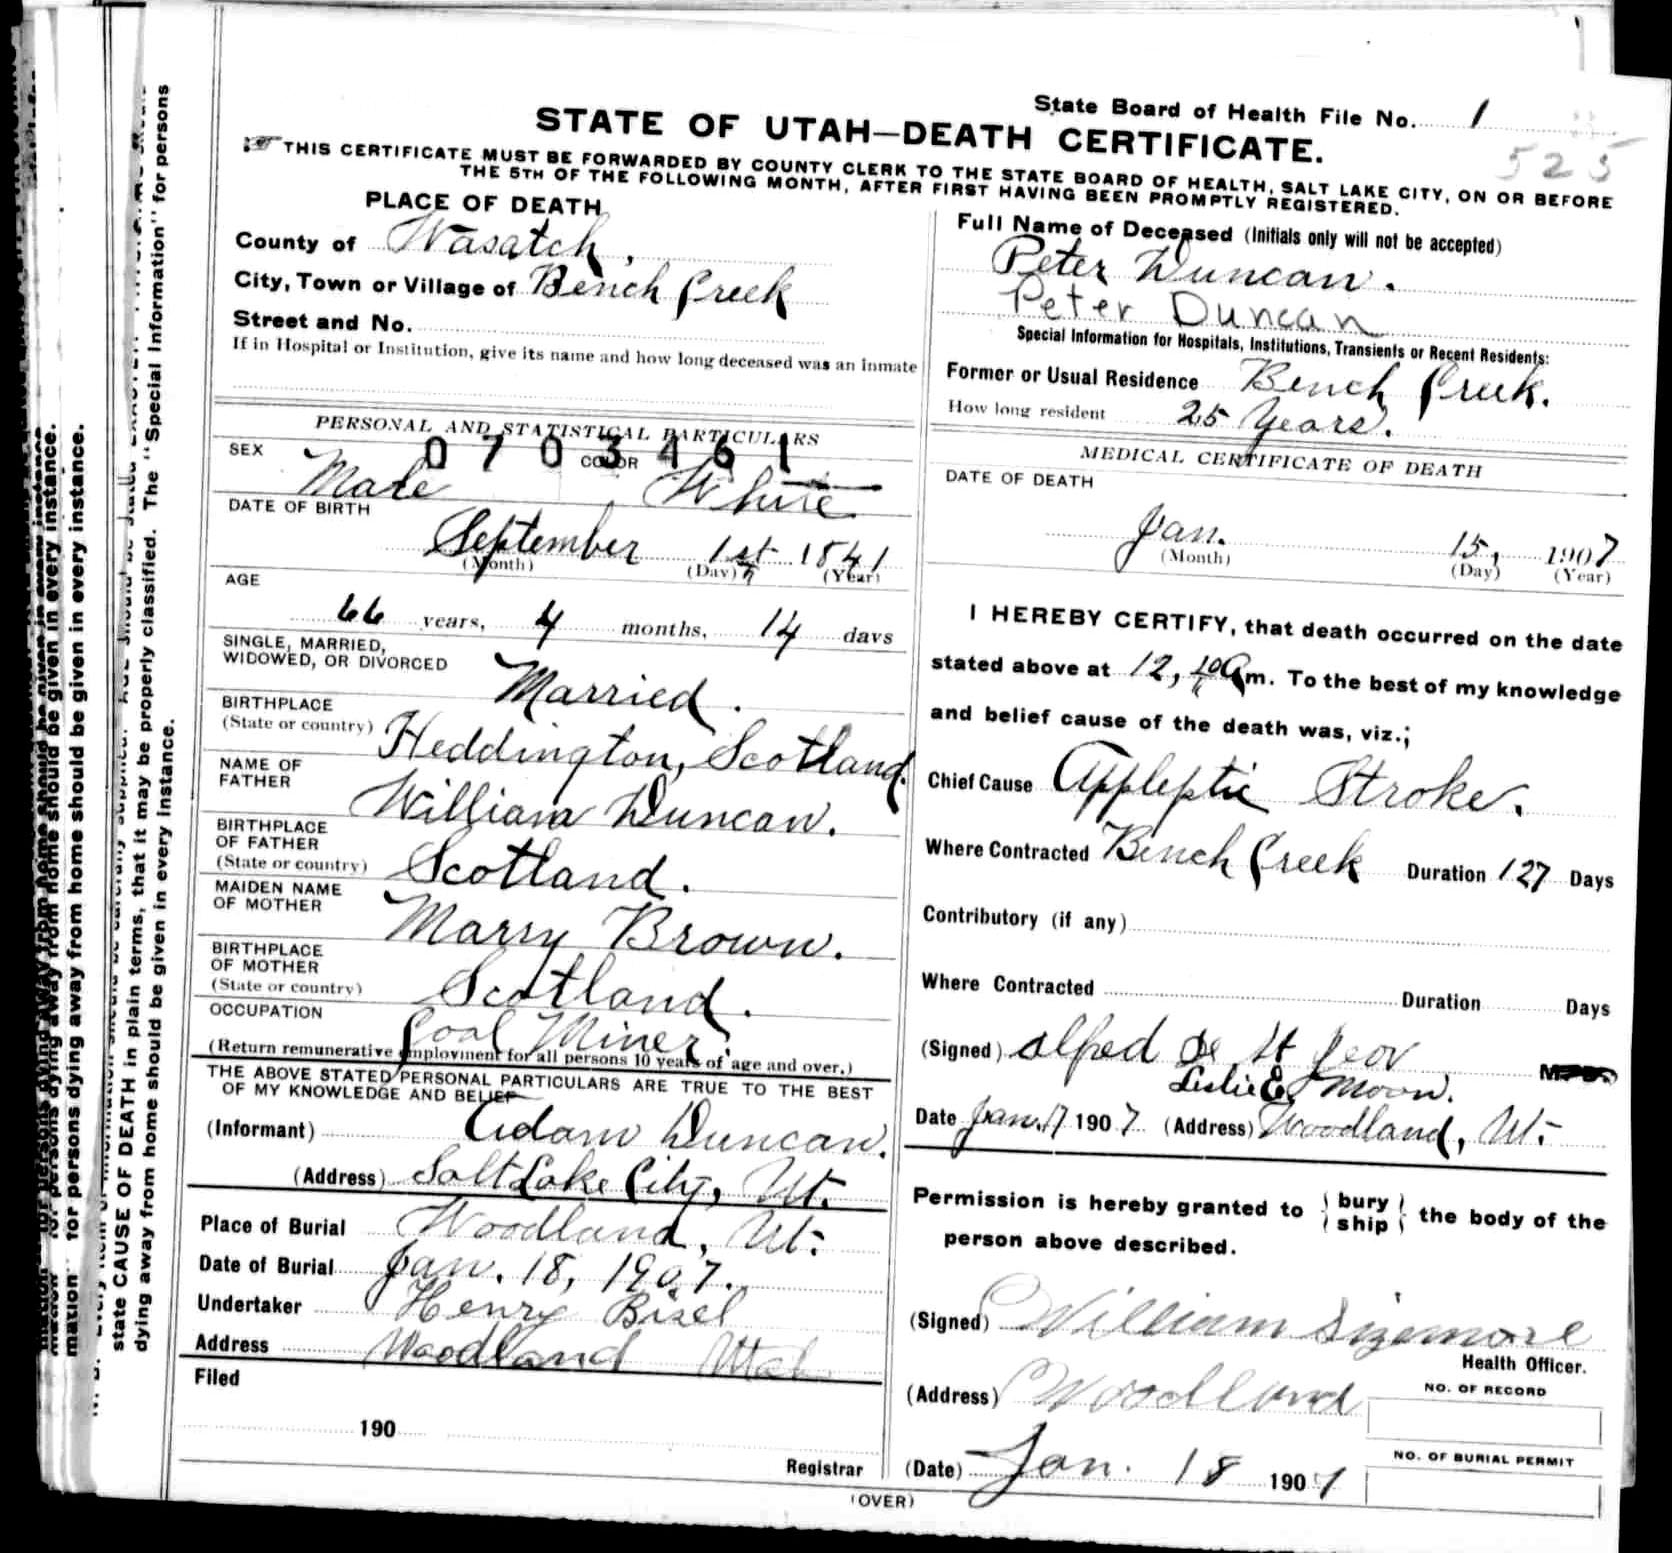 State Board of Health File No. 1
525
STATE OF UTAH—DEATH CERTIFICATE.
☞ THIS CERTIFICATE MUST BE FORWARDED BY COUNTY CLERK TO THE STATE BOARD OF HEALTH, SALT LAKE CITY, ON OR BEFORE
THE 5TH OF THE FOLLOWING MONTH, AFTER FIRST HAVING BEEN PROMPTLY REGISTERED.
PLACE OF DEATH
County of Wasatch,
City, Town or Village of Bench Creek
Street and No.
If in Hospital or Institution, give its name and how long deceased was an inmate
Full Name of Deceased (Initials only will not be accepted)
Peter Duncan.
Peter Duncan
Special Information for Hospitals, Institutions, Transients or Recent Residents:
Former or Usual Residence Bench Creek.
How long resident 25 Years.
PERSONAL AND STATISTICAL PARTICULARS
0703461
SEX Male COLOR White
DATE OF BIRTH
September 1st 1841
(Month) (Day) (Year)
AGE
66 years, 4 months, 14 days
SINGLE, MARRIED,
WIDOWED, OR DIVORCED Married.
BIRTHPLACE
(State or country) Heddington, Scotland.
NAME OF
FATHER William Duncan.
BIRTHPLACE
OF FATHER
(State or country) Scotland.
MAIDEN NAME
OF MOTHER Marry Brown.
BIRTHPLACE
OF MOTHER
(State or country) Scotland.
OCCUPATION Coal Miner.
(Return remunerative employment for all persons 10 years of age and over.)
THE ABOVE STATED PERSONAL PARTICULARS ARE TRUE TO THE BEST
OF MY KNOWLEDGE AND BELIEF
(Informant) Adam Duncan.
(Address) Salt Lake City, Ut.
Place of Burial Woodland, Ut.
Date of Burial Jan. 18, 1907.
Undertaker Henry Bisel
Address Woodland Utah
Filed
190
Registrar
MEDICAL CERTIFICATE OF DEATH
DATE OF DEATH
Jan. 15, 1907
(Month) (Day) (Year)
I HEREBY CERTIFY, that death occurred on the date
stated above at 12, 10 A m. To the best of my knowledge
and belief cause of the death was, viz.;
Chief Cause Appleptic Stroke.
Where Contracted Bench Creek Duration 127 Days
Contributory (if any)
Where Contracted Duration Days
(Signed) Alfred De St Jeor
Leslie E. Moon.
Date Jan. 17 1907 (Address) Woodland, Ut.
Permission is hereby granted to { bury / ship } the body of the
person above described.
(Signed) William Sizemore
Health Officer.
(Address) Woodland
NO. OF RECORD
NO. OF BURIAL PERMIT
(Date) Jan. 18 1907
(OVER)
state CAUSE OF DEATH in plain terms, that it may be properly classified. The "Special Information" for persons
dying away from home should be given in every instance.
mation" for persons dying away from home should be given in every instance.